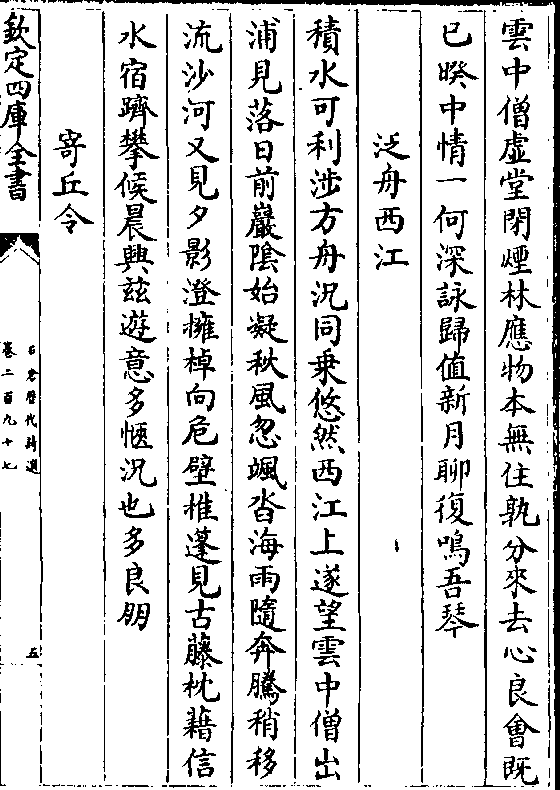 雲中僧虛堂閉煙林應物本無住孰分來去心良會旣
已暌中情一何深詠歸值新月聊復鳴吾琴
泛舟西江
積水可利涉方舟況同乗悠然西江上遂望雲中僧出
浦見落日前巖隂始凝秋風忽颯沓海雨隨奔騰稍移
流沙河又見夕影澄擁棹向危壁椎蓬見古藤枕藉信
水宿躋攀候晨興兹遊意多愜況也多良朋
寄丘令
欽定四庫全書
石倉歴代詩選
卷二百九十七
五